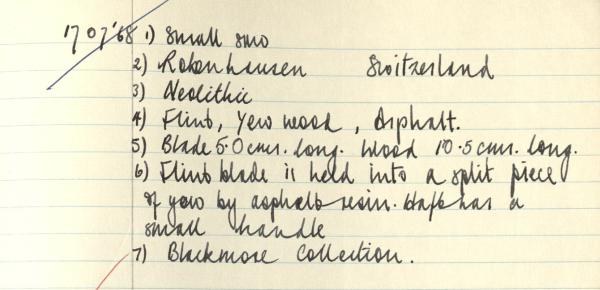 17 07 '68 1) Small saw
2) Robenhausen Switzerland
3) Neolithic
4) Flint, Yew wood, Asphalt.
5) Blade 5.0 cms. long. Wood 10.5 cms. long.
6) Flint blade is held into a split piece
of yew by asphalt resin. Haft has a
small handle
7) Blackmore Collection.